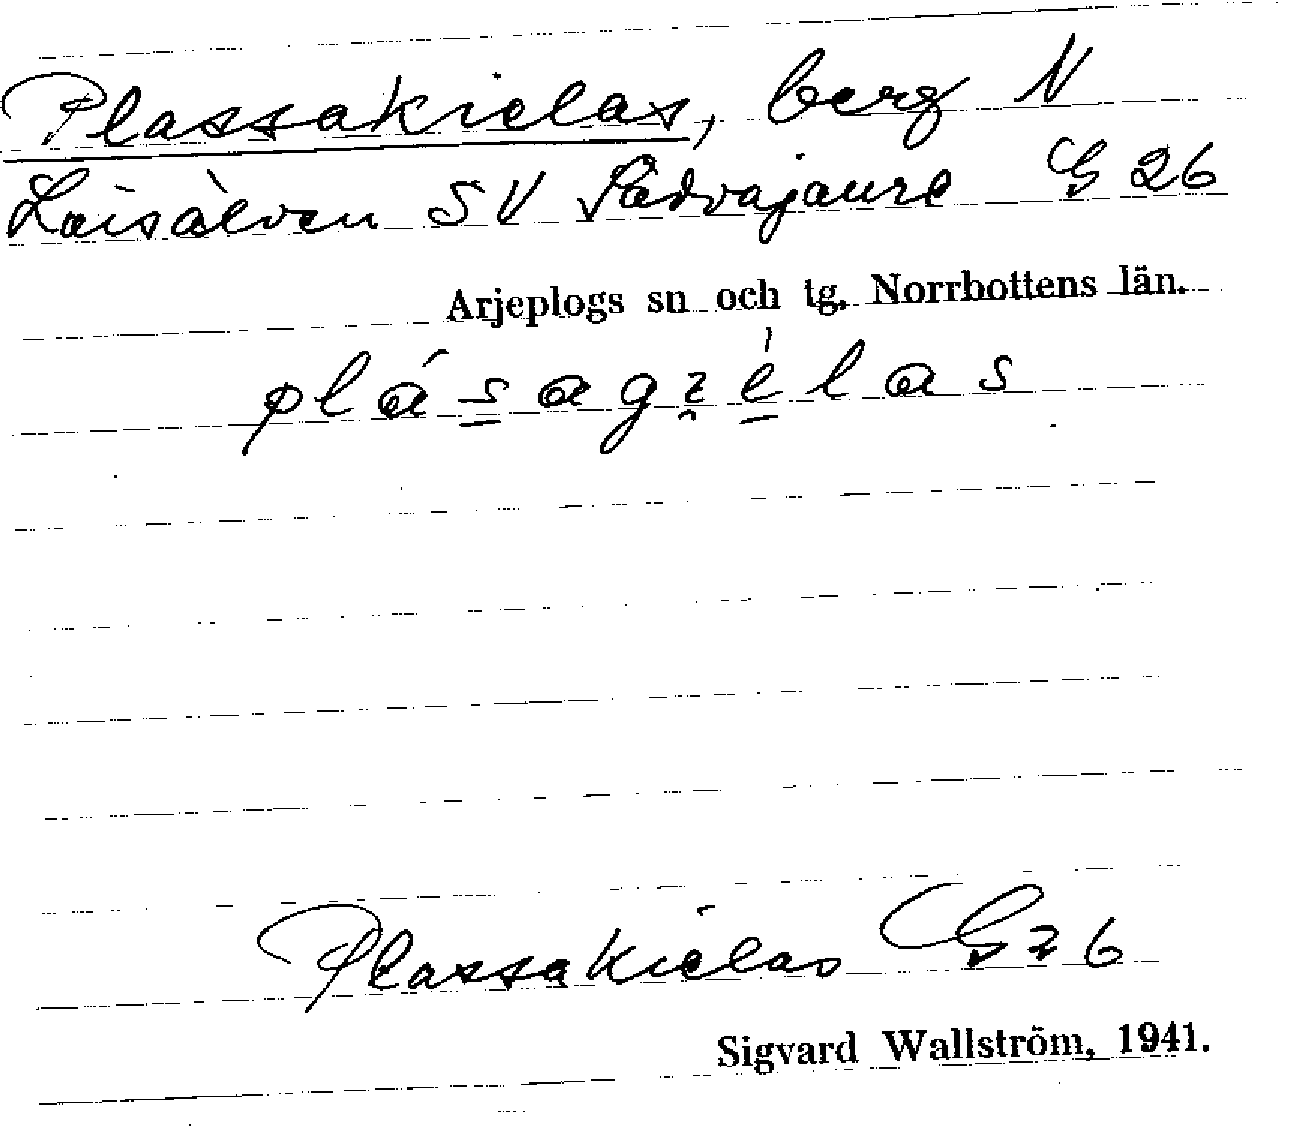 Plassakielas, berg N
Laisälven SV Sädvajaure G 26
Arjeplogs sn och tg, Norrbottens län.
Plassakielas G 26
Sigvard Wallström, 1941.